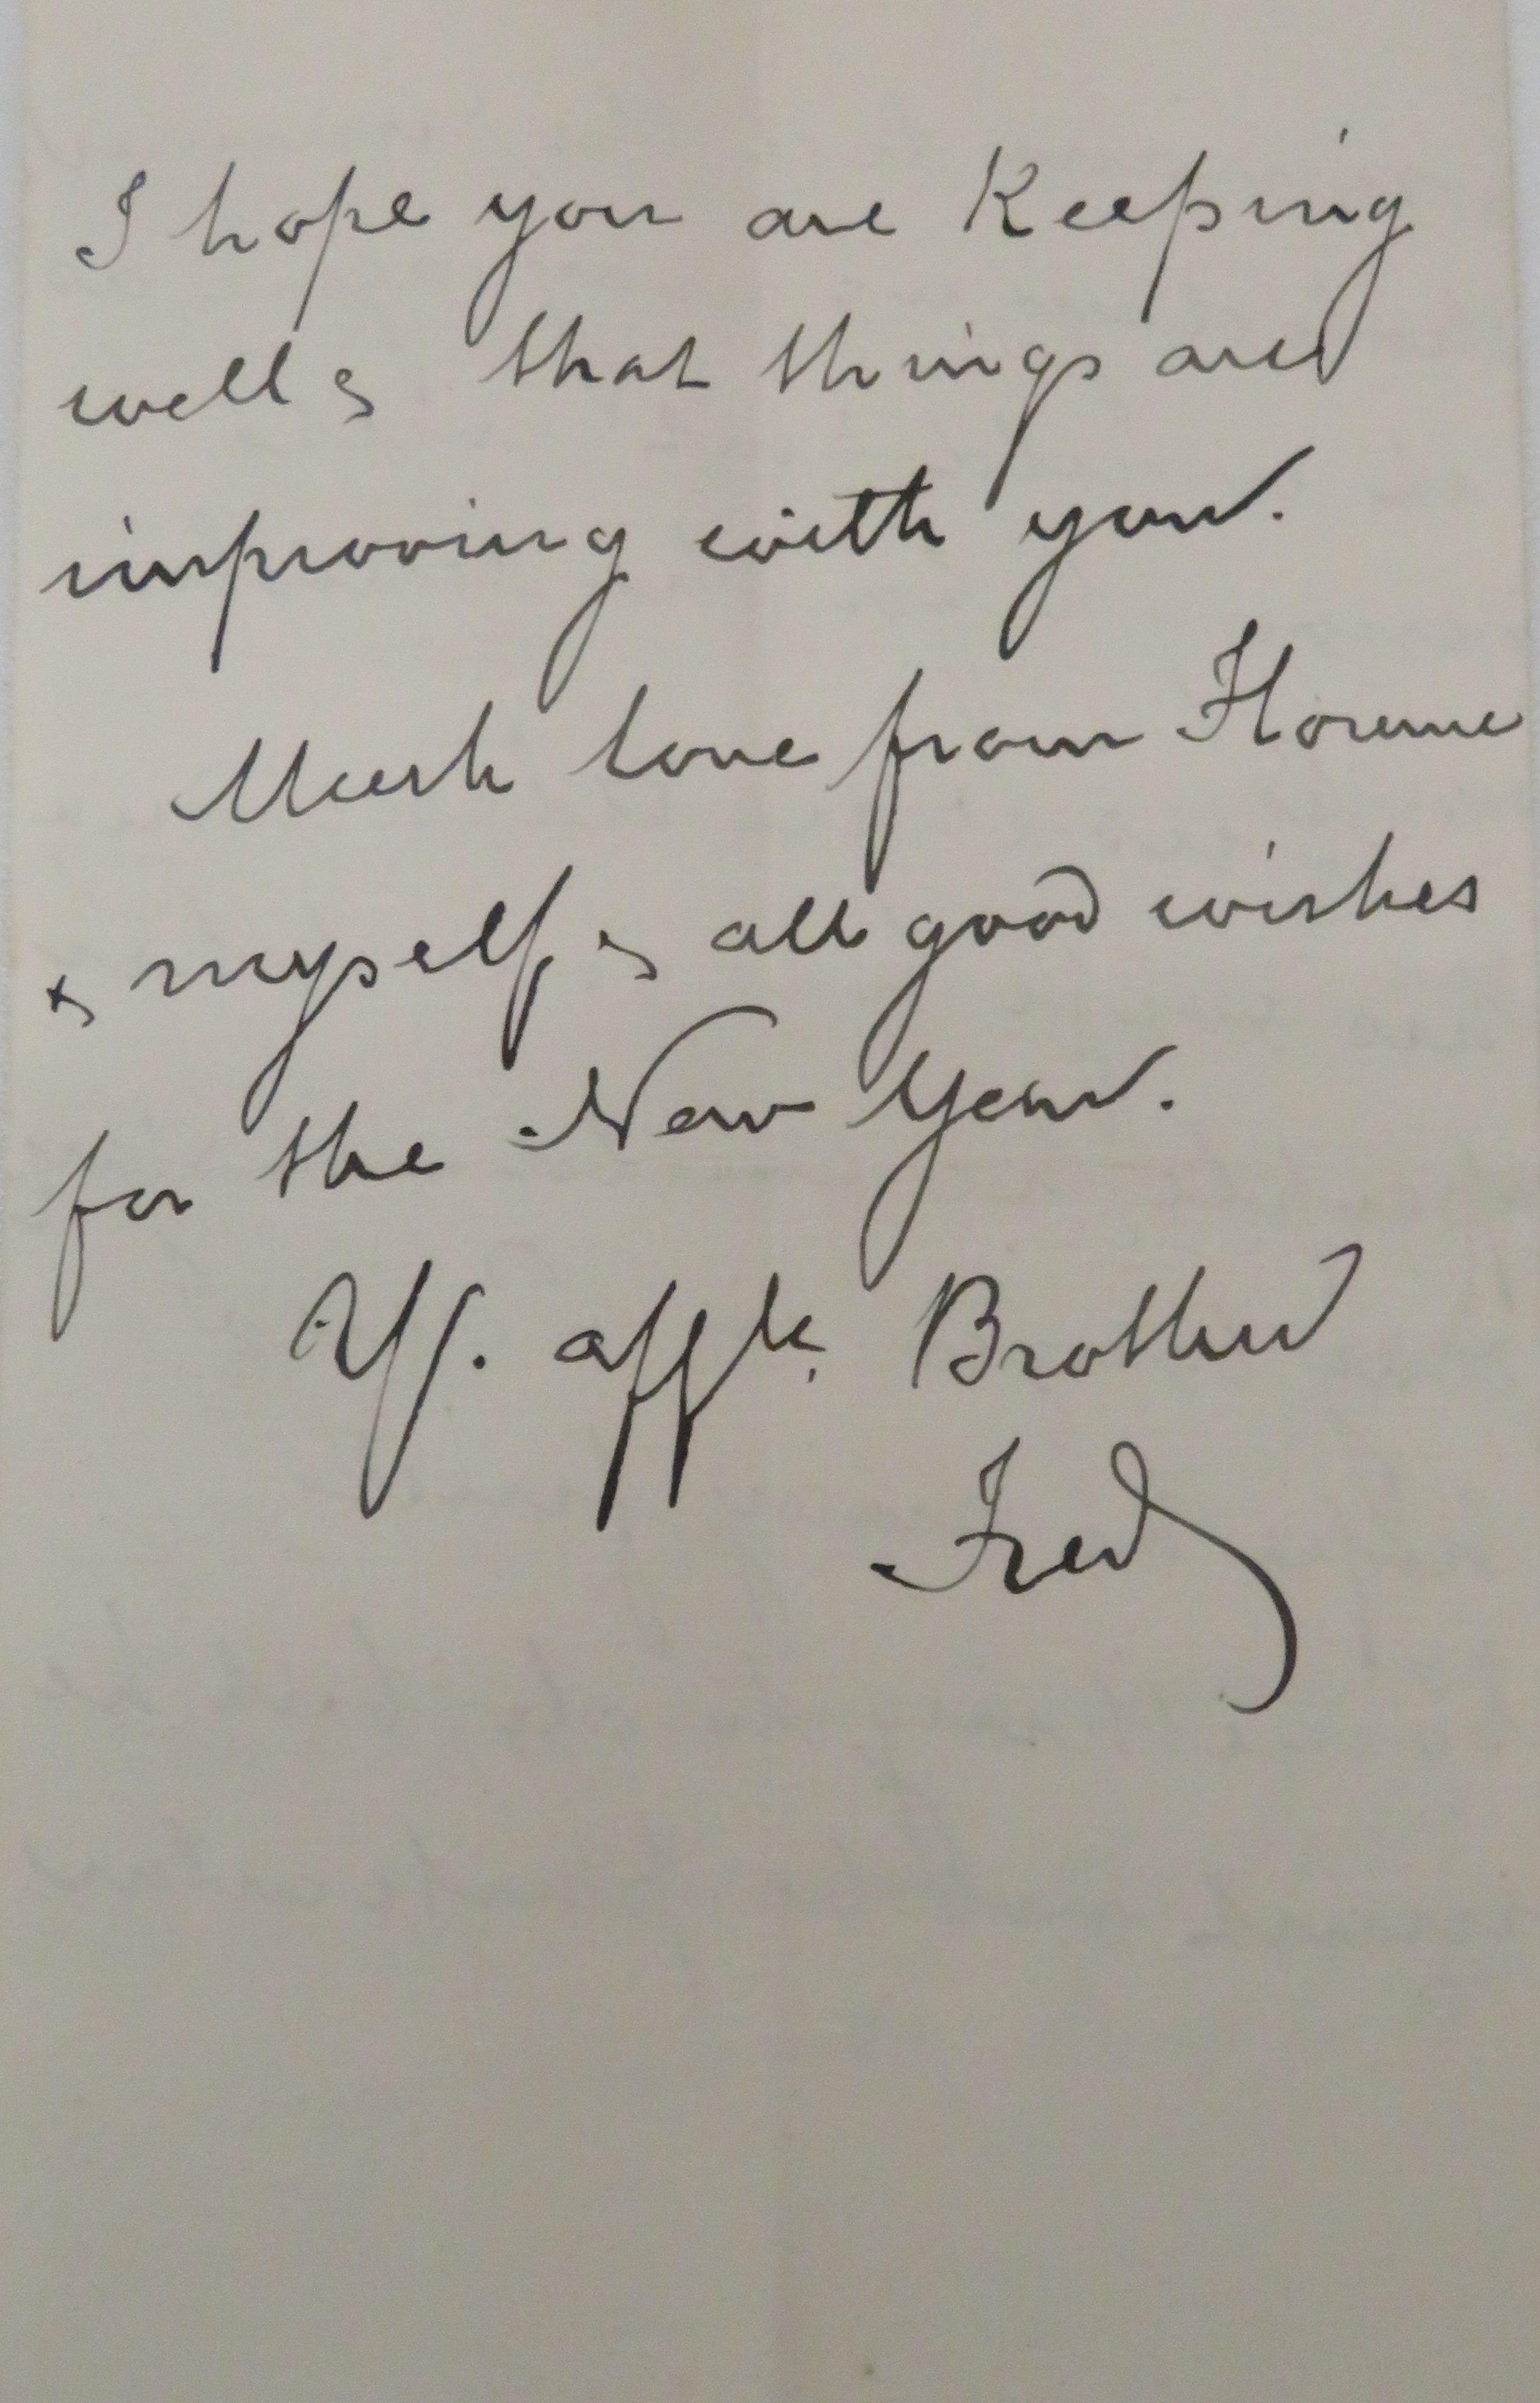 I hope you are Keeping
well & that things are
improving with you.
Much love from Florence
& myself, & all good wishes
for the New Year.
Yr. affte. Brother
Fred